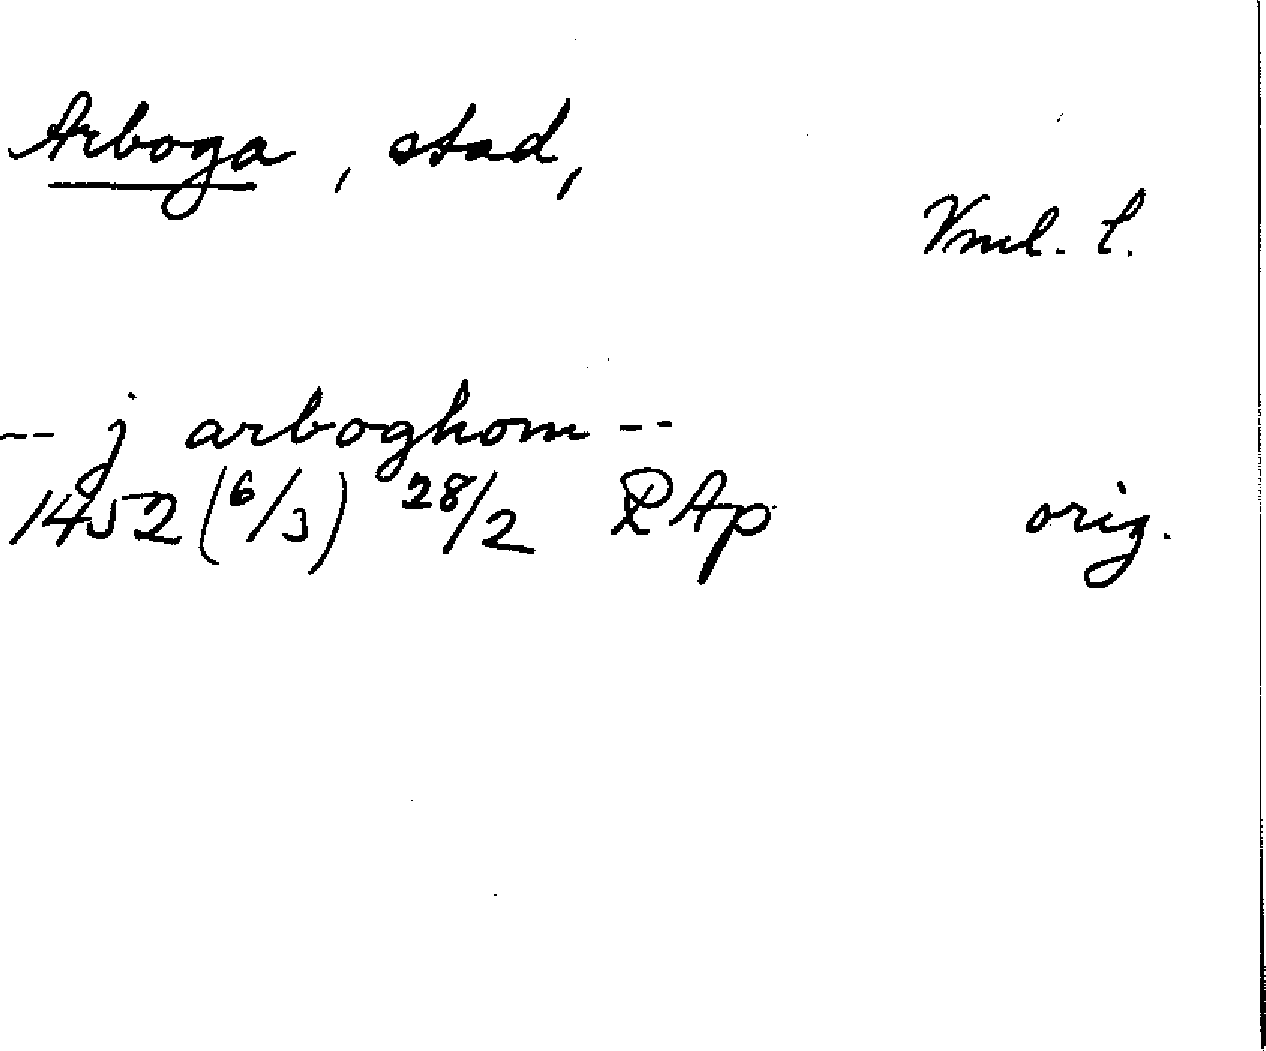 Arboga, stad,
Vml. l.
-- j arboghom --
1452 (6/3) 28/2 RAp orig.